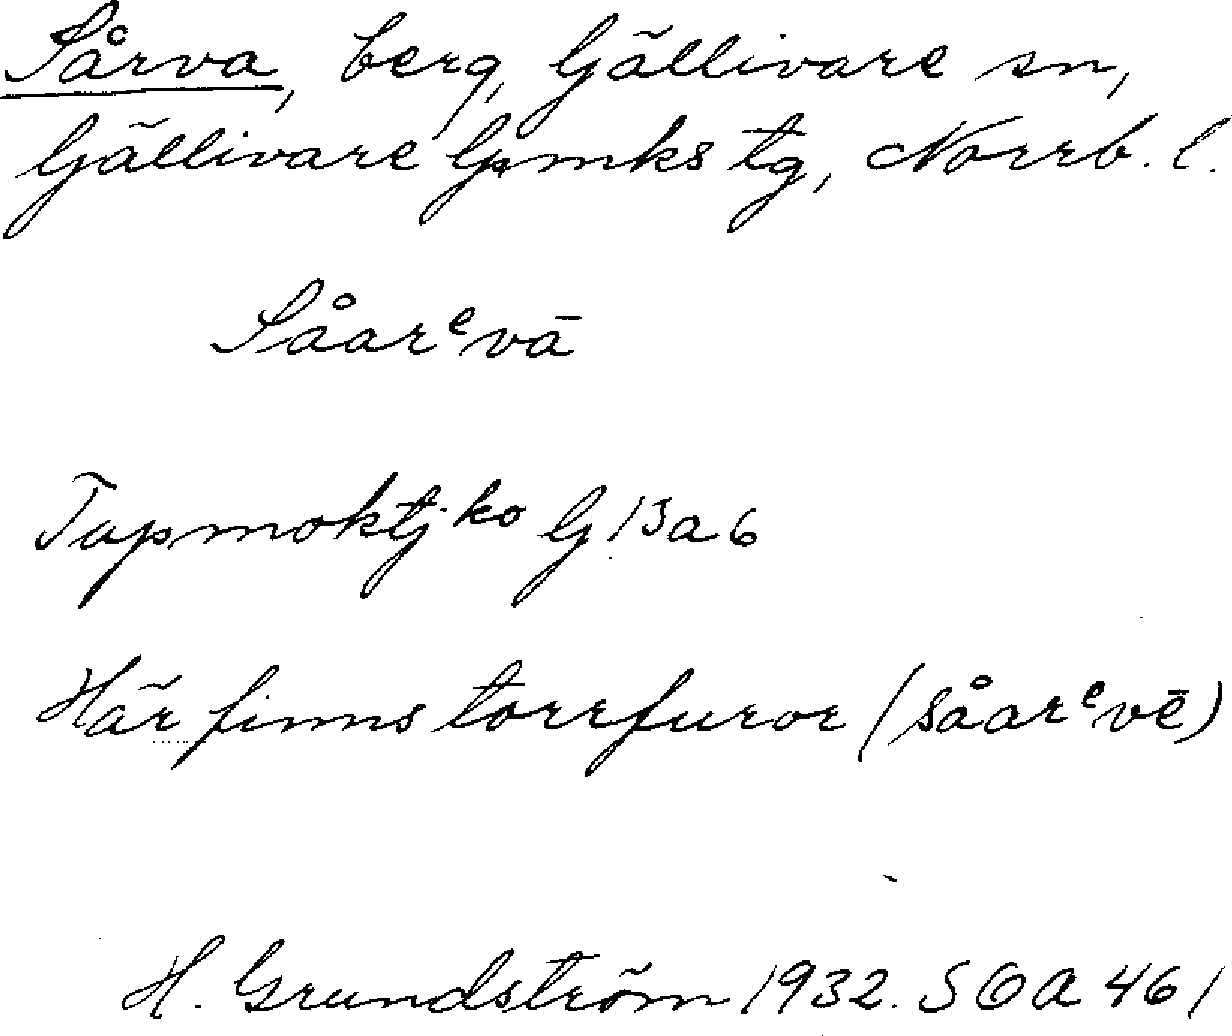 Sårva, berg, Gällivare sn,
Gällivare lpmks tg, Norrb. l.
Såarᵉvā
Tapmoktj ko G 13 a 6
Här finns torrfuror (såarᵉvē)
H. Grundström 1932. SOA 461